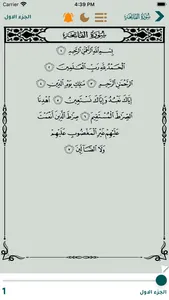 Carrier 4:39 PM
الجزء الاول سورة الفاتحة
سورة الفاتحة
بسم الله الرحمن الرحيم ١
الحمد لله رب العالمين ٢
الرحمن الرحيم ٣ مالك يوم الدين ٤
إياك نعبد وإياك نستعين ٥ اهدنا
الصراط المستقيم ٦ صراط الذين أنعمت
عليهم غير المغضوب عليهم
ولا الضالين ٧
1 الجزء الاول